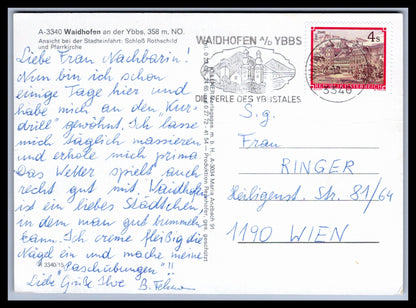 A-3340 Waidhofen an der Ybbs, 358 m, NO.
Ansicht bei der Stadteinfahrt: Schloß Rothschild
und Pfarrkirche
Liebe Frau Nachbarin!
Nun bin ich schon
einige Tage hier und
habe mich an den "Kur-
drill" gewöhnt. Ich lasse
mich täglich massieren
und erhole mich prima
Das Wetter spielt auch
recht gut mit. Waidhofen
ist ein liebes Städtchen,
in dem man gut bummeln
kann. Ich creme fleißig die
Nägel ein und mache meine
"Laschübungen"!!
Liebe Grüße Ihre B.
A 3340/15
WAIDHOFEN a/d YBBS
DIE PERLE DES YBBSTALES
3340
4 S
REPUBLIK ÖSTERREICH
S. g.
Frau
RINGER
Heiligenst. Str. 81/64
1190 WIEN